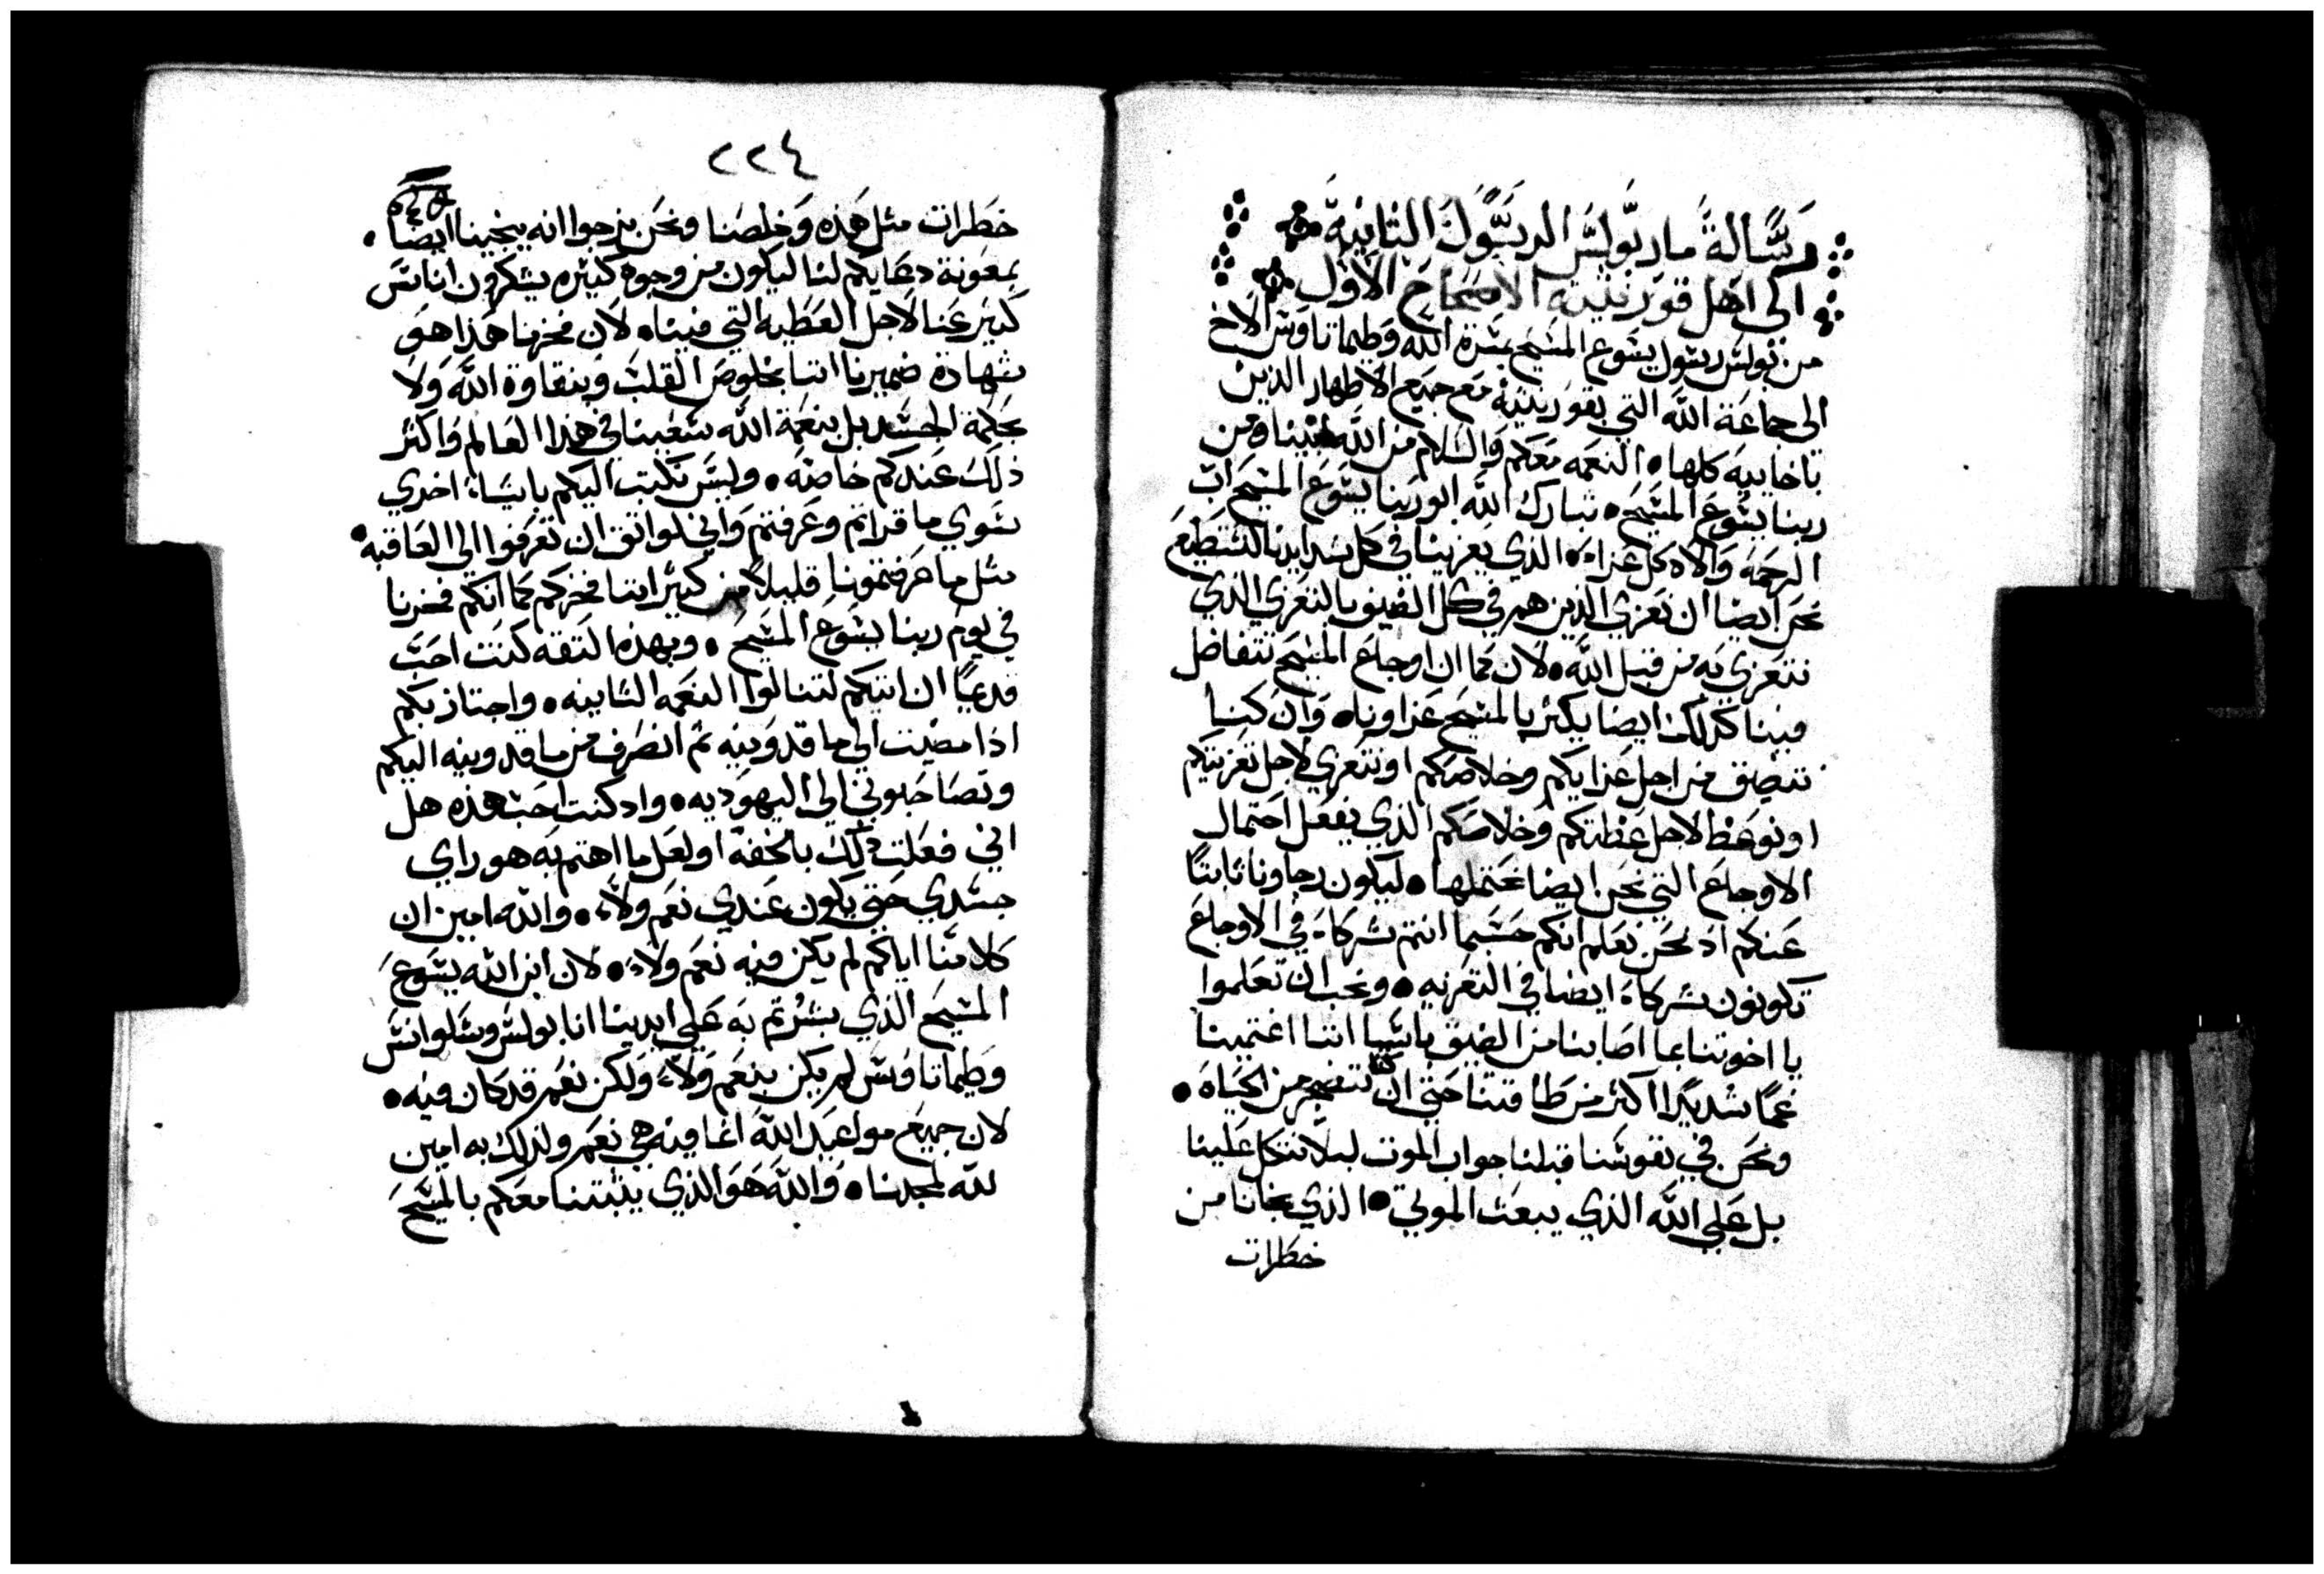 رسالة مار بولس الرسول الثانية
الى اهل قورنثية الاصحاح الاول
من بولس رسول يسوع المسيح بمسرة الله وطيماتاوس الاخ
الى جماعة الله التي بقورنثية مع جميع الاطهار الذين
باخاييه كلها • النعمه معكم والسلام من الله ابينا ومن
ربنا يسوع المسيح • تبارك الله ابو ربنا يسوع المسيح اب
الرحمة واله كل عزاء • الذي يعزينا في كل شدايدنا لنستطيع
نحن ايضا ان نعزي الذين هم في كل الضيق بالتعزي الذي
نتعزي به من قبل الله • لان كما ان اوجاع المسيح تتفاضل
فينا كذلك ايضا يكثر بالمسيح عزاونا • وان كنا
نتضيق من اجل عزايكم وخلاصكم او نتعزي لاجل تعزيتكم
او نوعظ لاجل عظتكم وخلاصكم الذي يفعل احتمال
الاوجاع التي نحن ايضا نحتملها • ليكون رجاونا ثابتا
عنكم اذ نحن نعلم انكم حسبما انتم شركاء في الاوجاع
تكونون شركاء ايضا في التعزيه • ونحب ان تعلموا
يا اخوتنا بما اصابنا من الضيق باسيا اننا اغتمينا
غما شديدا اكثر من طاقتنا حتى ان كنا نتضجر من الحياة •
ونحن في نفوسنا قبلنا جواب الموت ليلا نتكل علينا
بل على الله الذي يبعث الموتي • الذي نجانا من
خطرات
٢٢٤
خطرات مثل هذه وخلصنا ونحن نرجوا انه ينجينا ايضا •
بمعونة دعايكم لنا ليكون من وجوه كثيره يشكرون اناس
كثير عنا لاجل العطيه التي فينا • لان فخرنا هذا هو
شهادة ضميرنا اننا بخلوص القلب وبنقاوة الله ولا
بحكمة الجسد بل بنعمة الله سعينا في هذا العالم واكثر
ذلك عندكم خاصه • وليس نكتب اليكم باشياء اخري
سوي ما قراتم وعرفتم واني لواثق ان تعرفوا الى العاقبه •
مثل ما عرفتمونا قليلا من كثير اننا فخركم كما انكم فخرنا
في يوم ربنا يسوع المسيح • وبهذه الثقه كنت احب
قديما ان اتيكم لتنالوا النعمه الثانيه • واجتاز بكم
اذا مضيت الى ماقدونيه ثم انصرف من ماقدونيه اليكم
وتصاحبوني الى اليهوديه • واذ كنت احب هذه هل
اني فعلت ذلك بالخفة او لعل ما اهتم به هو راي
جسدي حتى يكون عندي نعم ولا • والله امين ان
كلامنا اياكم لم يكن فيه نعم ولا • لان ابن الله يسوع
المسيح الذي بشرتم به على ايدينا انا بولس وسلوانس
وطيماتاوس لم يكن بنعم ولا ولكن نعم قد كان فيه •
لان جميع مواعيد الله انما فيه هي نعم ولذلك به امين
لله لمجدنا • والله هو الذي يثبتنا معكم بالمسيح